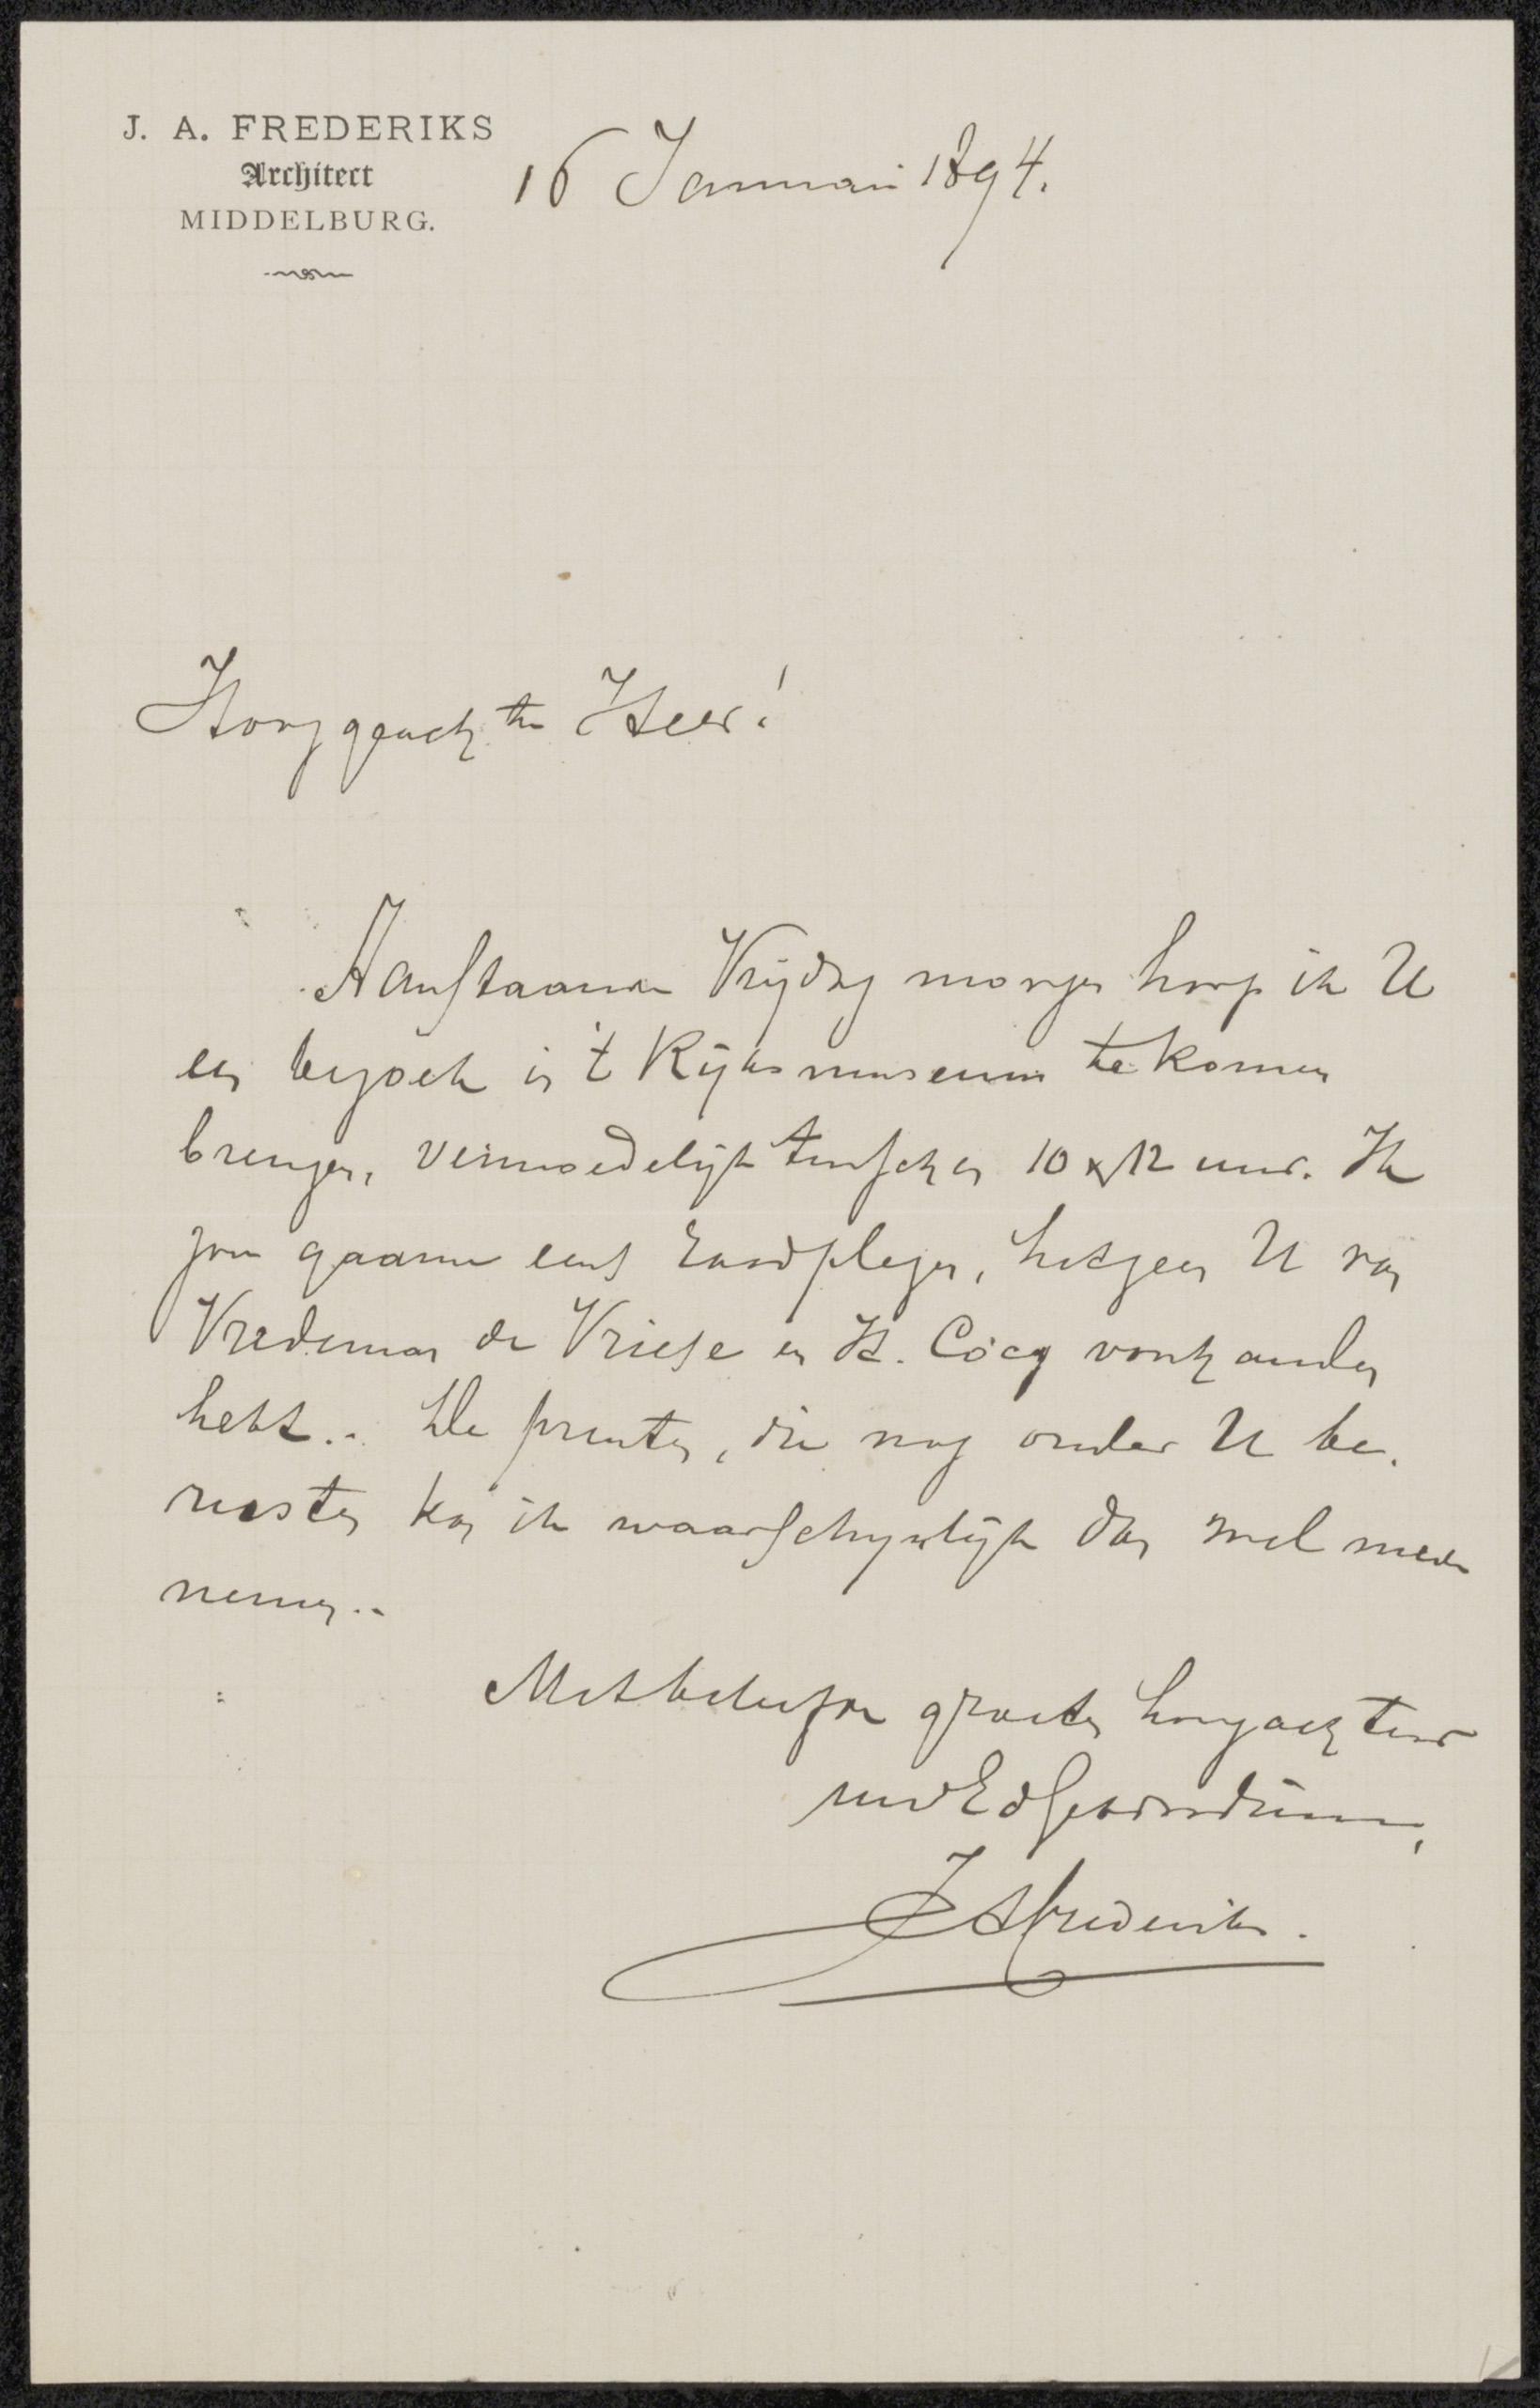 J. A. FREDERIKS
Architect
MIDDELBURG.
16 Januari 1894.
Hooggeachte Heer!
Aanstaande Vrijdag morgen hoop ik U
een bezoek in 't Rijksmuseum te komen
brengen, vermoedelijk tusschen 10 & 12 uur. Ik
zou gaarne eens raadplegen, hetgeen U van
Vredeman de Vriese en H. Cocq voorhanden
hebt. De prenten, die nog onder U be-
rusten kan ik waarschijnlijk dan wel mede
nemen.
Met beleefde groeten hoogachtend
uwEdGestrdienaar,
JAFrederiks.